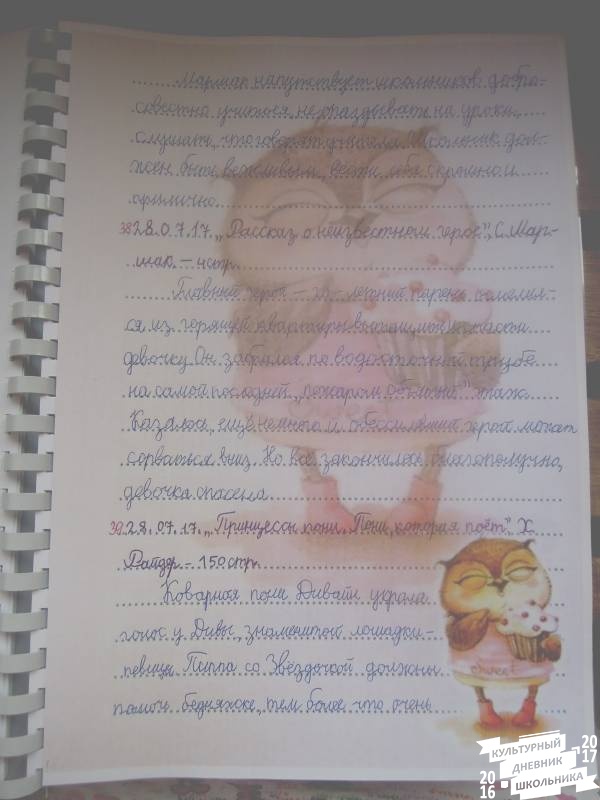 Маршак напутствует школьников добро-
совестно учиться, не опаздывать на уроки,
слушать, что говорят учителя. Школьник дол-
жен быть вежливым, вести себя скромно и
прилично.
38 28.07.17. „Рассказ о неизвестном герое", С. Мар-
шак. – 4 стр.
Главный герой – 20 – летний парень
ся из горящей квартиры вытащить и спасти
девочку. Он забрался по водосточной трубе
на самый последний „пожаром объятый" этаж.
Казалось, ещё немного и обессилевший герой может
сорваться вниз. Но всё закончилось благополучно,
девочка спасена.
39 28.07.17. „Принцессы пони. Пони, которая поёт". Х.
Райдер – 150 стр.
Коварная пони Дивайн украла
голос у Дивы, знаменитой лошадки –
певицы. Пиппа со Звёздочкой должны
помочь бедняжке, тем более что очень
Sweet
КУЛЬТУРНЫЙ
ДНЕВНИК
ШКОЛЬНИКА
2016
2017